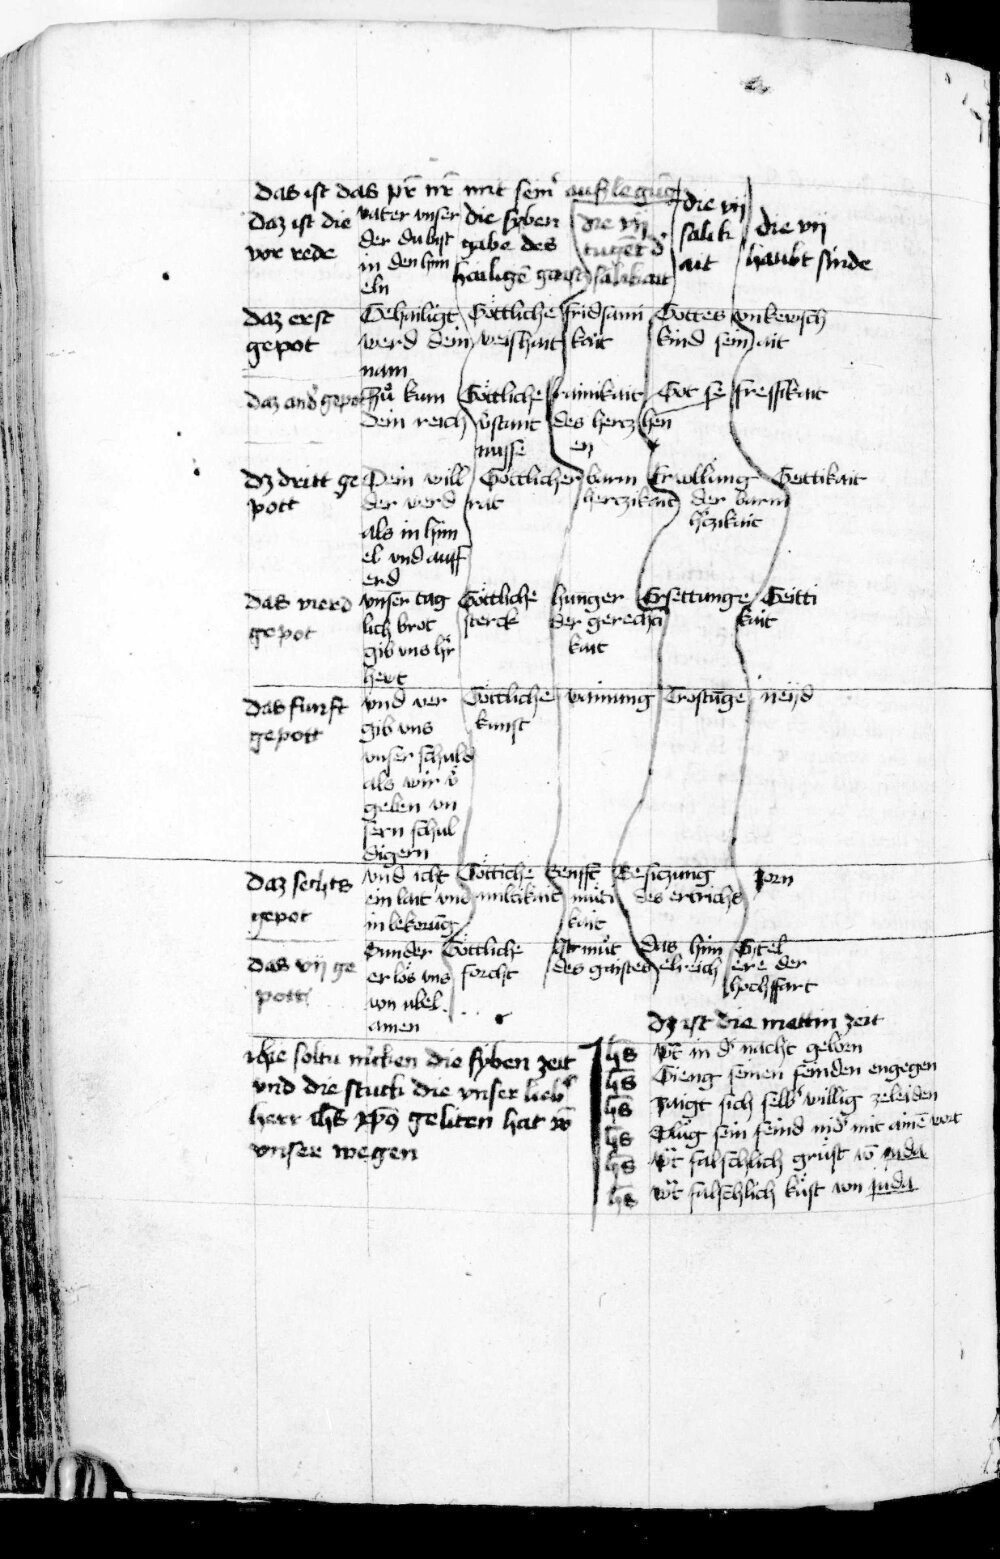 das ist das pr̄ nr̄ mit sein' auszlegūg
Daz ist die vor rede
vater vnser der du bist in den him eln
die syben gabe des hailigē gaist
die vij tugēt d' salikait
die vij salik ait
die vij haubt sünde
daz erst gepot
Gehailigt werd dein nam
Göttliche weishait
fridsam kait
Gottes kind sein
vnkewsch ait
daz and' gepot
Zů kum dein reich
Göttliche v̄stant nusse
rainikait des hercz en
Got se hen
fressikait
dz dritt ge pott
Dein will der werd als in him el vnd auff erd
Göttlicher rat
barm herczikait
Erwollung der barm h'czikait
Geittikait
das vierd gepot
vnser tag lich brot gib vns h'r hewt
Göttliche sterck
hunger der gerechti kait
Ersettunge
Geitti kait
das funft gepott
vnd ver gib vns vnser schuld als wir v' geben vn sern schul digern
Göttliche kunst
wainung
Trostūge
neyd
daz sechts gepot
vnd icht ein lait vns in bekorūg
Göttiche miltikait
Senfft muti kait
Besiczung des ertrichs
zorn
das vij ge pott
Sunder erlös vns von ubel. amen
Göttliche forcht
Armůt des gaistes
das him elreich
Eitel ere der hochffart
Dz ist die mettin zeit
Hie soltu m'cken die syben zeit
vnd die stuck die vnser lieb'
herr ihs xp̄s geliten hat vō
vnser wegen
ihs wr̄t in d' nacht geborn
ihs Gieng seinen feinden engegen
ihs Naigt sich selb' willig zeleiden
ihs Slůg sein feind nid' mit ainē wort
ihs wr̄t falschlich grüst vō juda
ihs wr̄t falschlich küst von juda